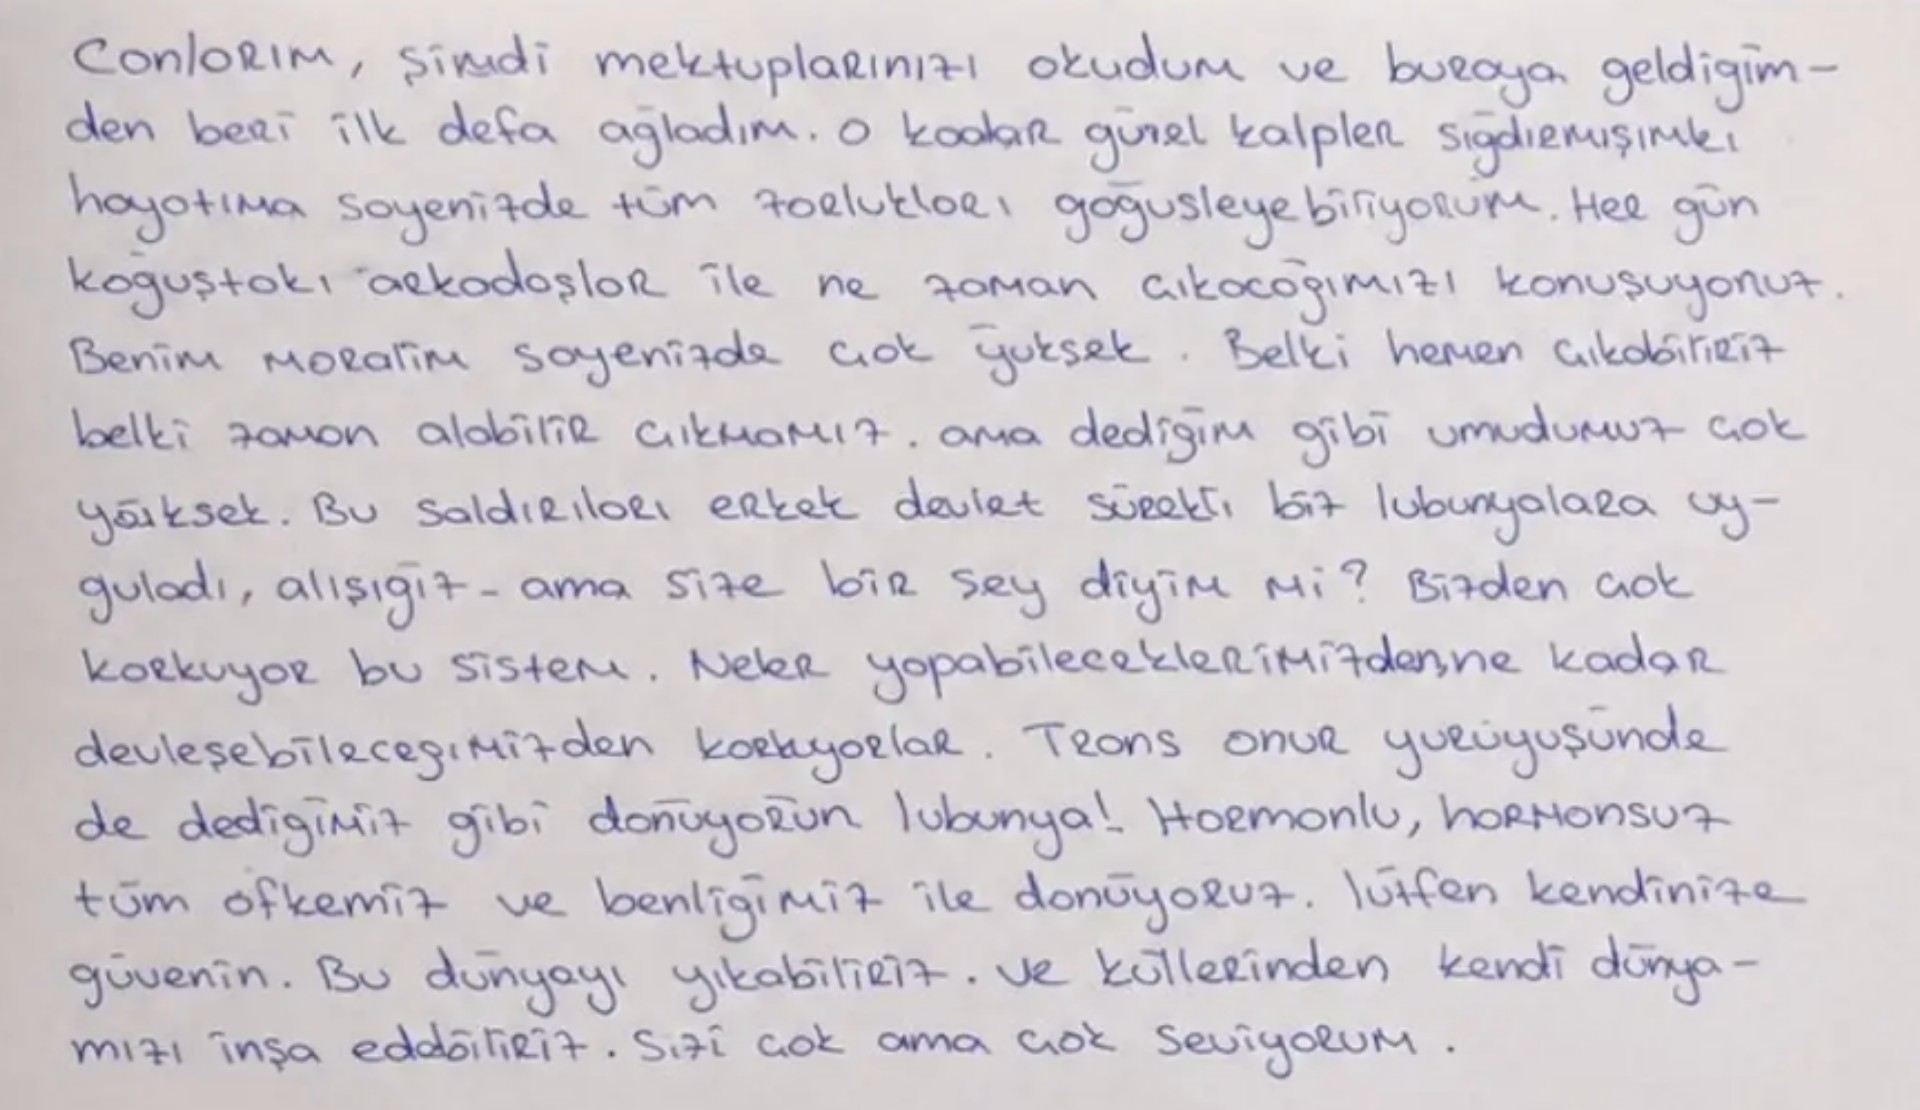 Canlarım, şimdi mektuplarınızı okudum ve buraya geldiğim-
den beri ilk defa ağladım. O kadar güzel kalpler sığdırmışımki
hayatıma sayenizde tüm zorlukları göğüsleyebiliyorum. Her gün
koğuştakı arkadaşlar ile ne zaman çıkacağımızı konuşuyoruz.
Benim moralim sayenizde çok yüksek. Belki hemen çıkabiliriz
belki zaman alabilir çıkmamız. ama dediğim gibi umudumuz çok
yüksek. Bu saldırıları erkek devlet sürekli biz lubunyalara uy-
guladı, alışığız - ama size bir şey diyim mi? Bizden çok
korkuyor bu sistem. Neler yapabileceklerimizden, ne kadar
devleşebileceğimizden korkuyorlar. Trans onur yürüyüşünde
de dediğimiz gibi dönüyorün lubunya! Hormonlu, hormonsuz
tüm öfkemiz ve benliğimiz ile dönüyoruz. lütfen kendinize
güvenin. Bu dünyayı yıkabiliriz. ve küllerinden kendi dünya-
mızı inşa edebiliriz. Sizi çok ama çok seviyorum.